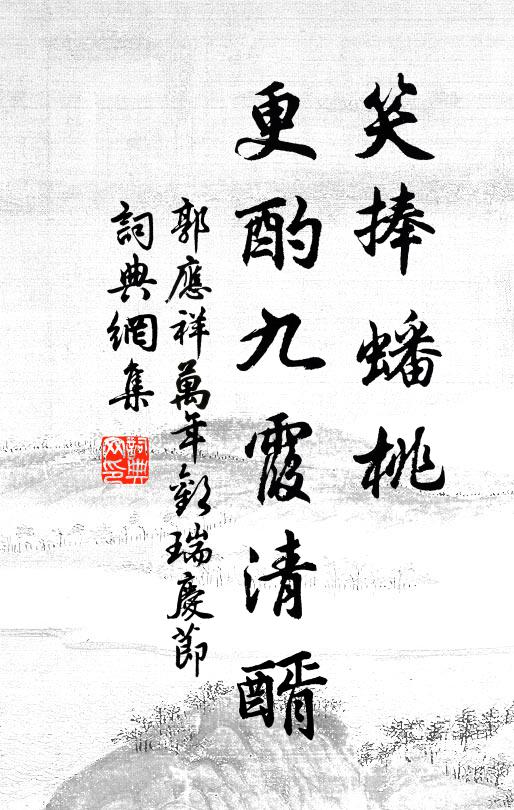 笑捧蟠桃
更酌九霞清醑
郭應祥萬年歡瑞慶節
詞典網集
詞典网印